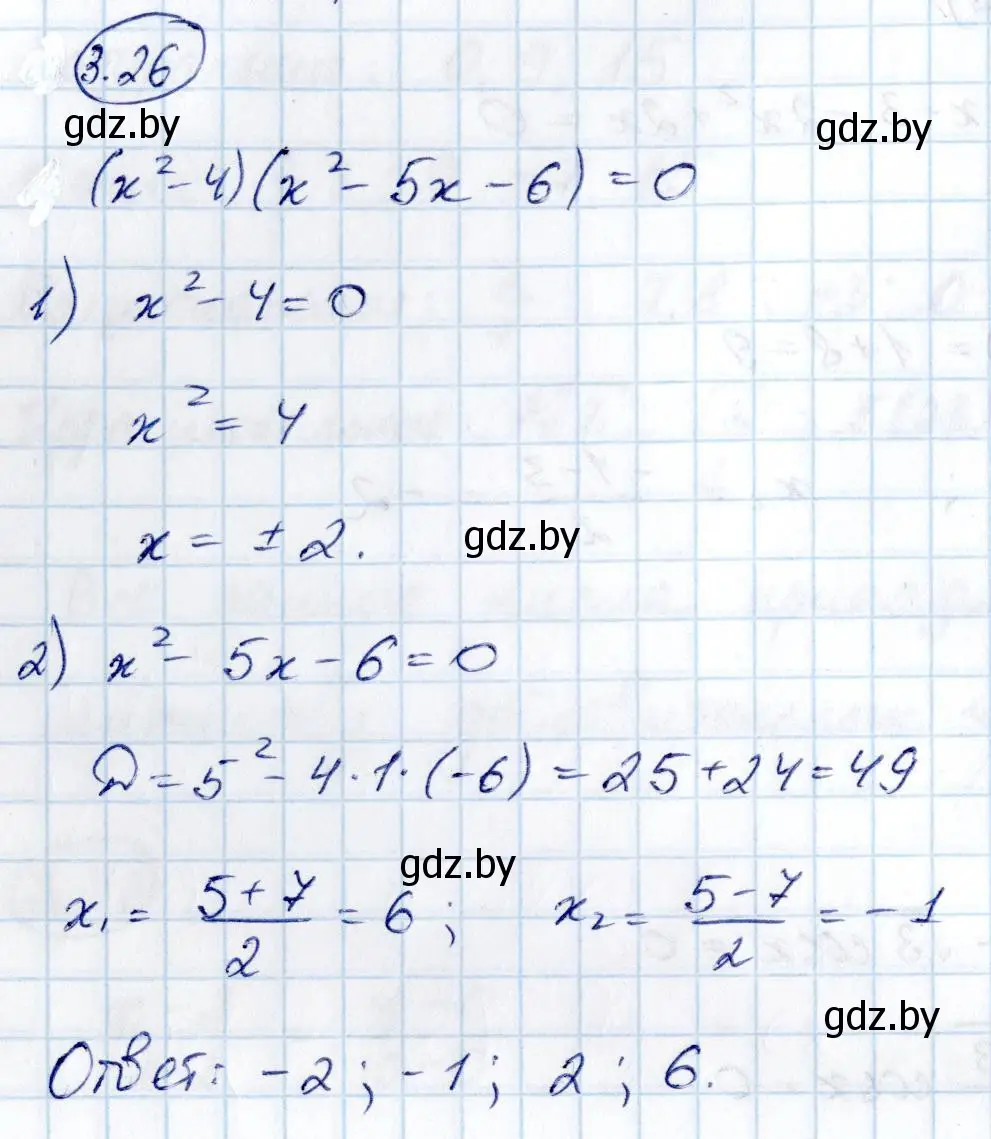 3.26
gdz.by
gdz.by
(x² - 4)(x² - 5x - 6) = 0
1) x² - 4 = 0
x² = 4
x = ± 2.
gdz.by
2) x² - 5x - 6 = 0
D = 5² - 4 · 1 · (-6) = 25 + 24 = 49
gdz.by
x₁ = (5 + 7)/2 = 6 ; x₂ = (5 - 7)/2 = -1
gdz.by
Ответ: -2 ; -1 ; 2 ; 6.